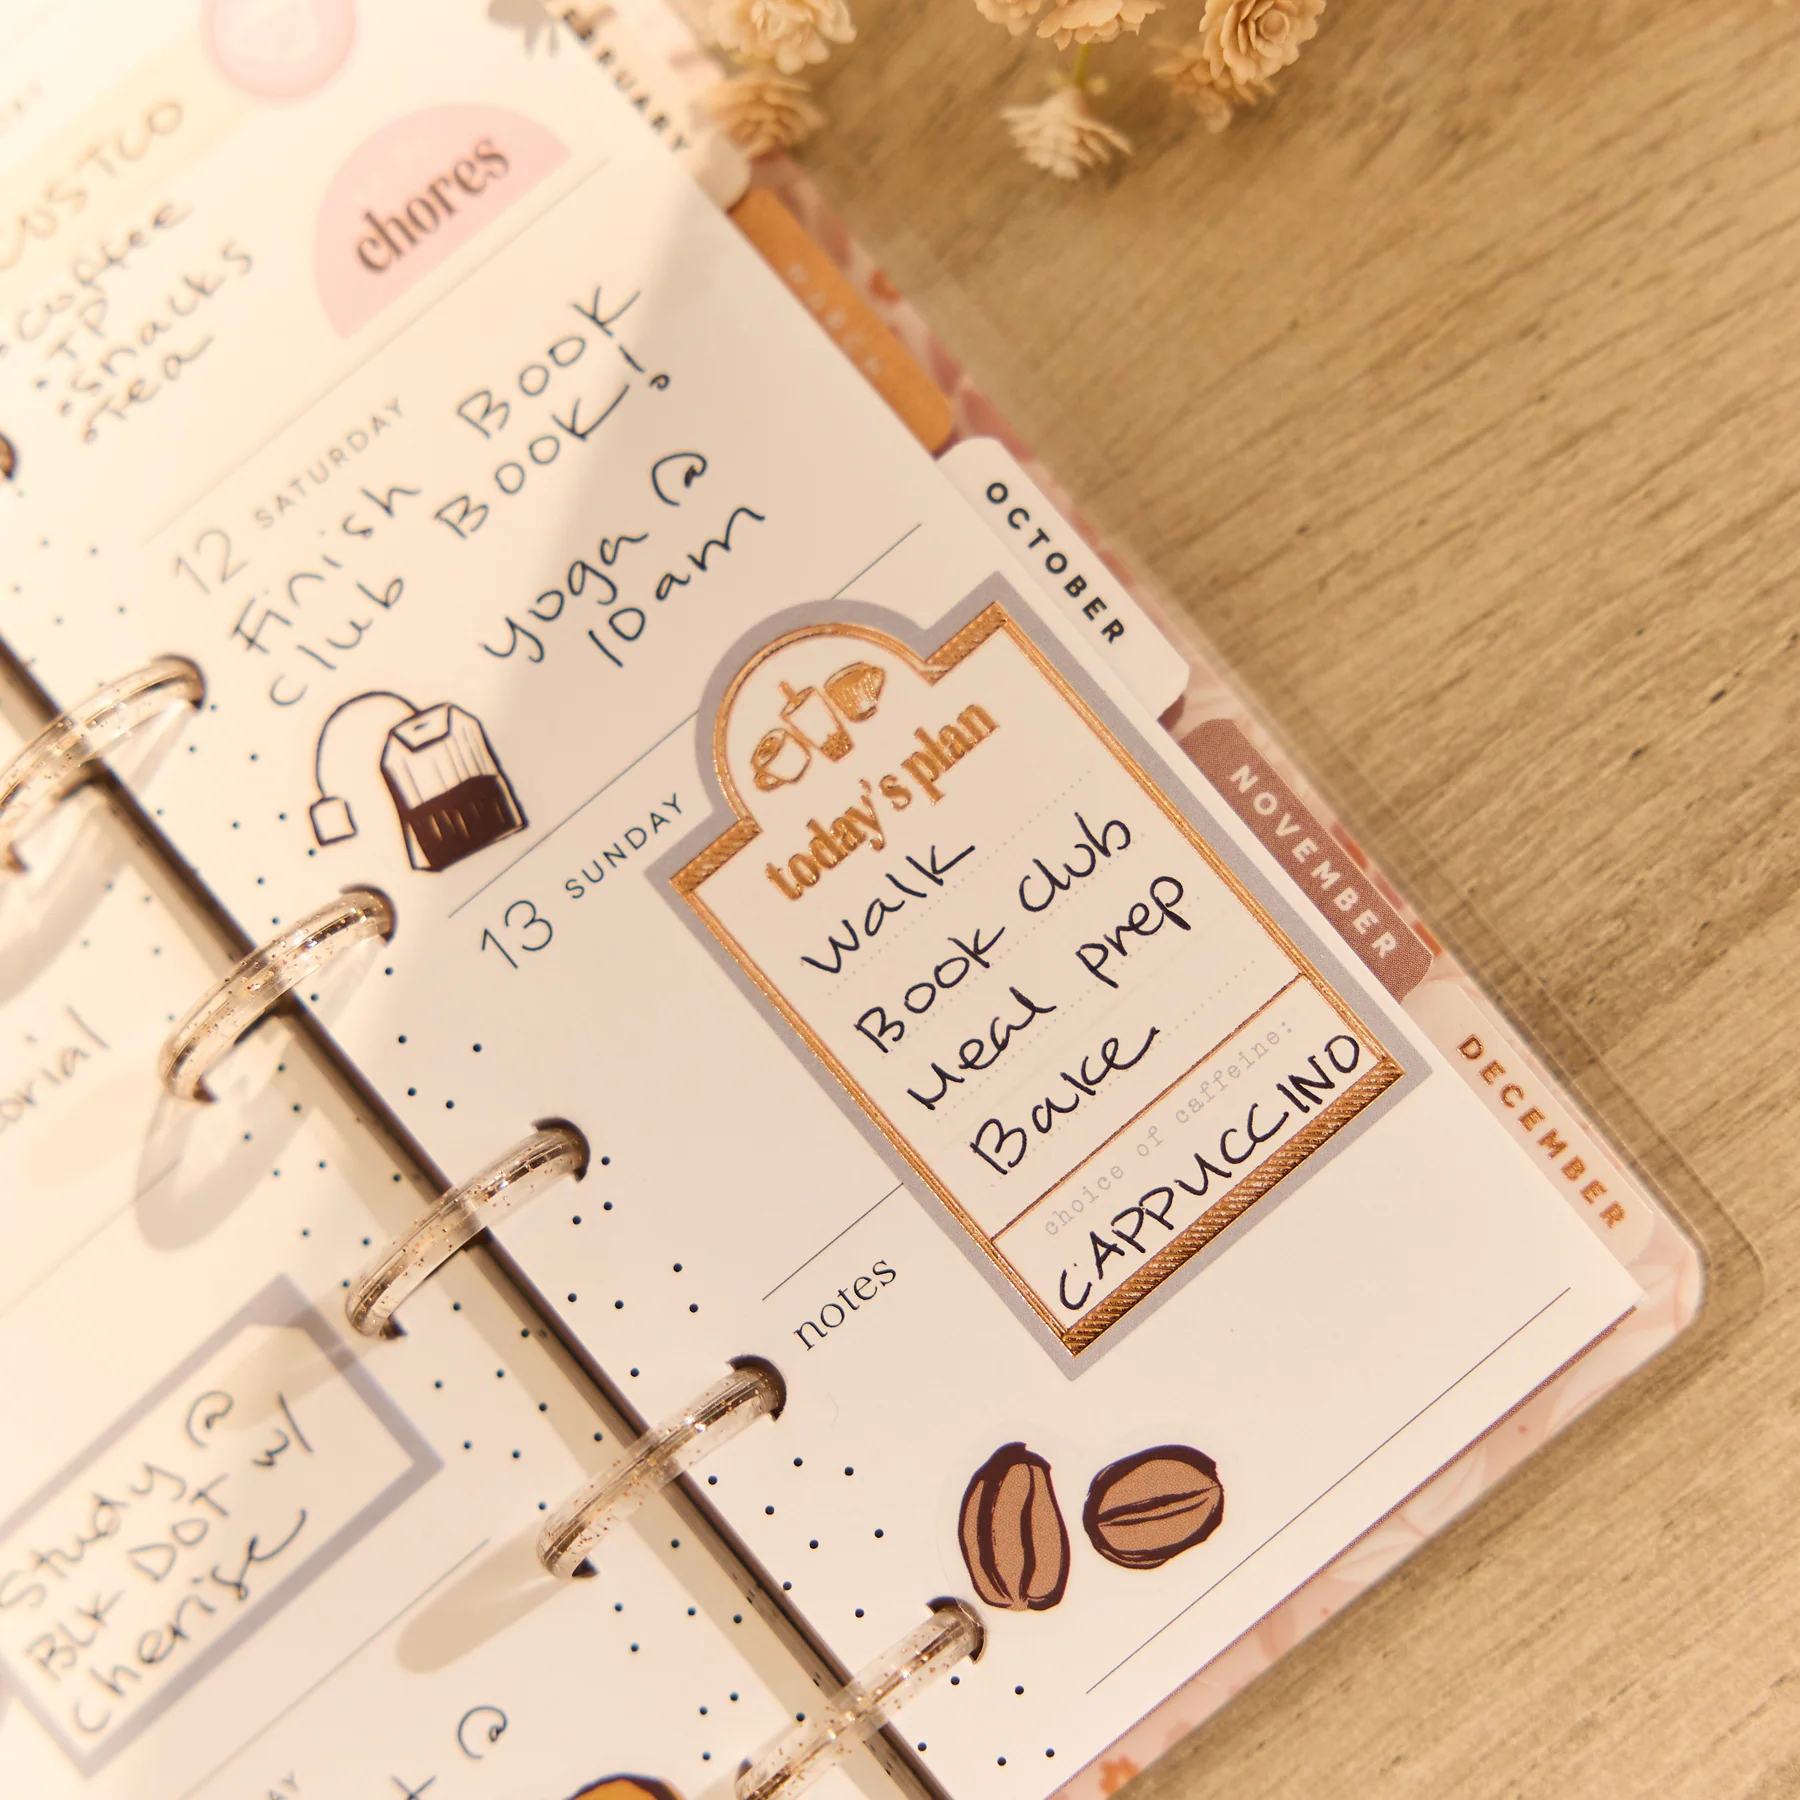 COSTCO
• coffee
• TP
• snacks
• Tea
chores
12 SATURDAY
Finish Book
club Book!
yoga @
10am
13 SUNDAY
today's plan
Walk
Book Club
Meal prep
Bake
choice of caffeine:
CAPPUCCINO
notes
Study @
BLK DOT w/
Cherise
@
MARCH
OCTOBER
NOVEMBER
DECEMBER